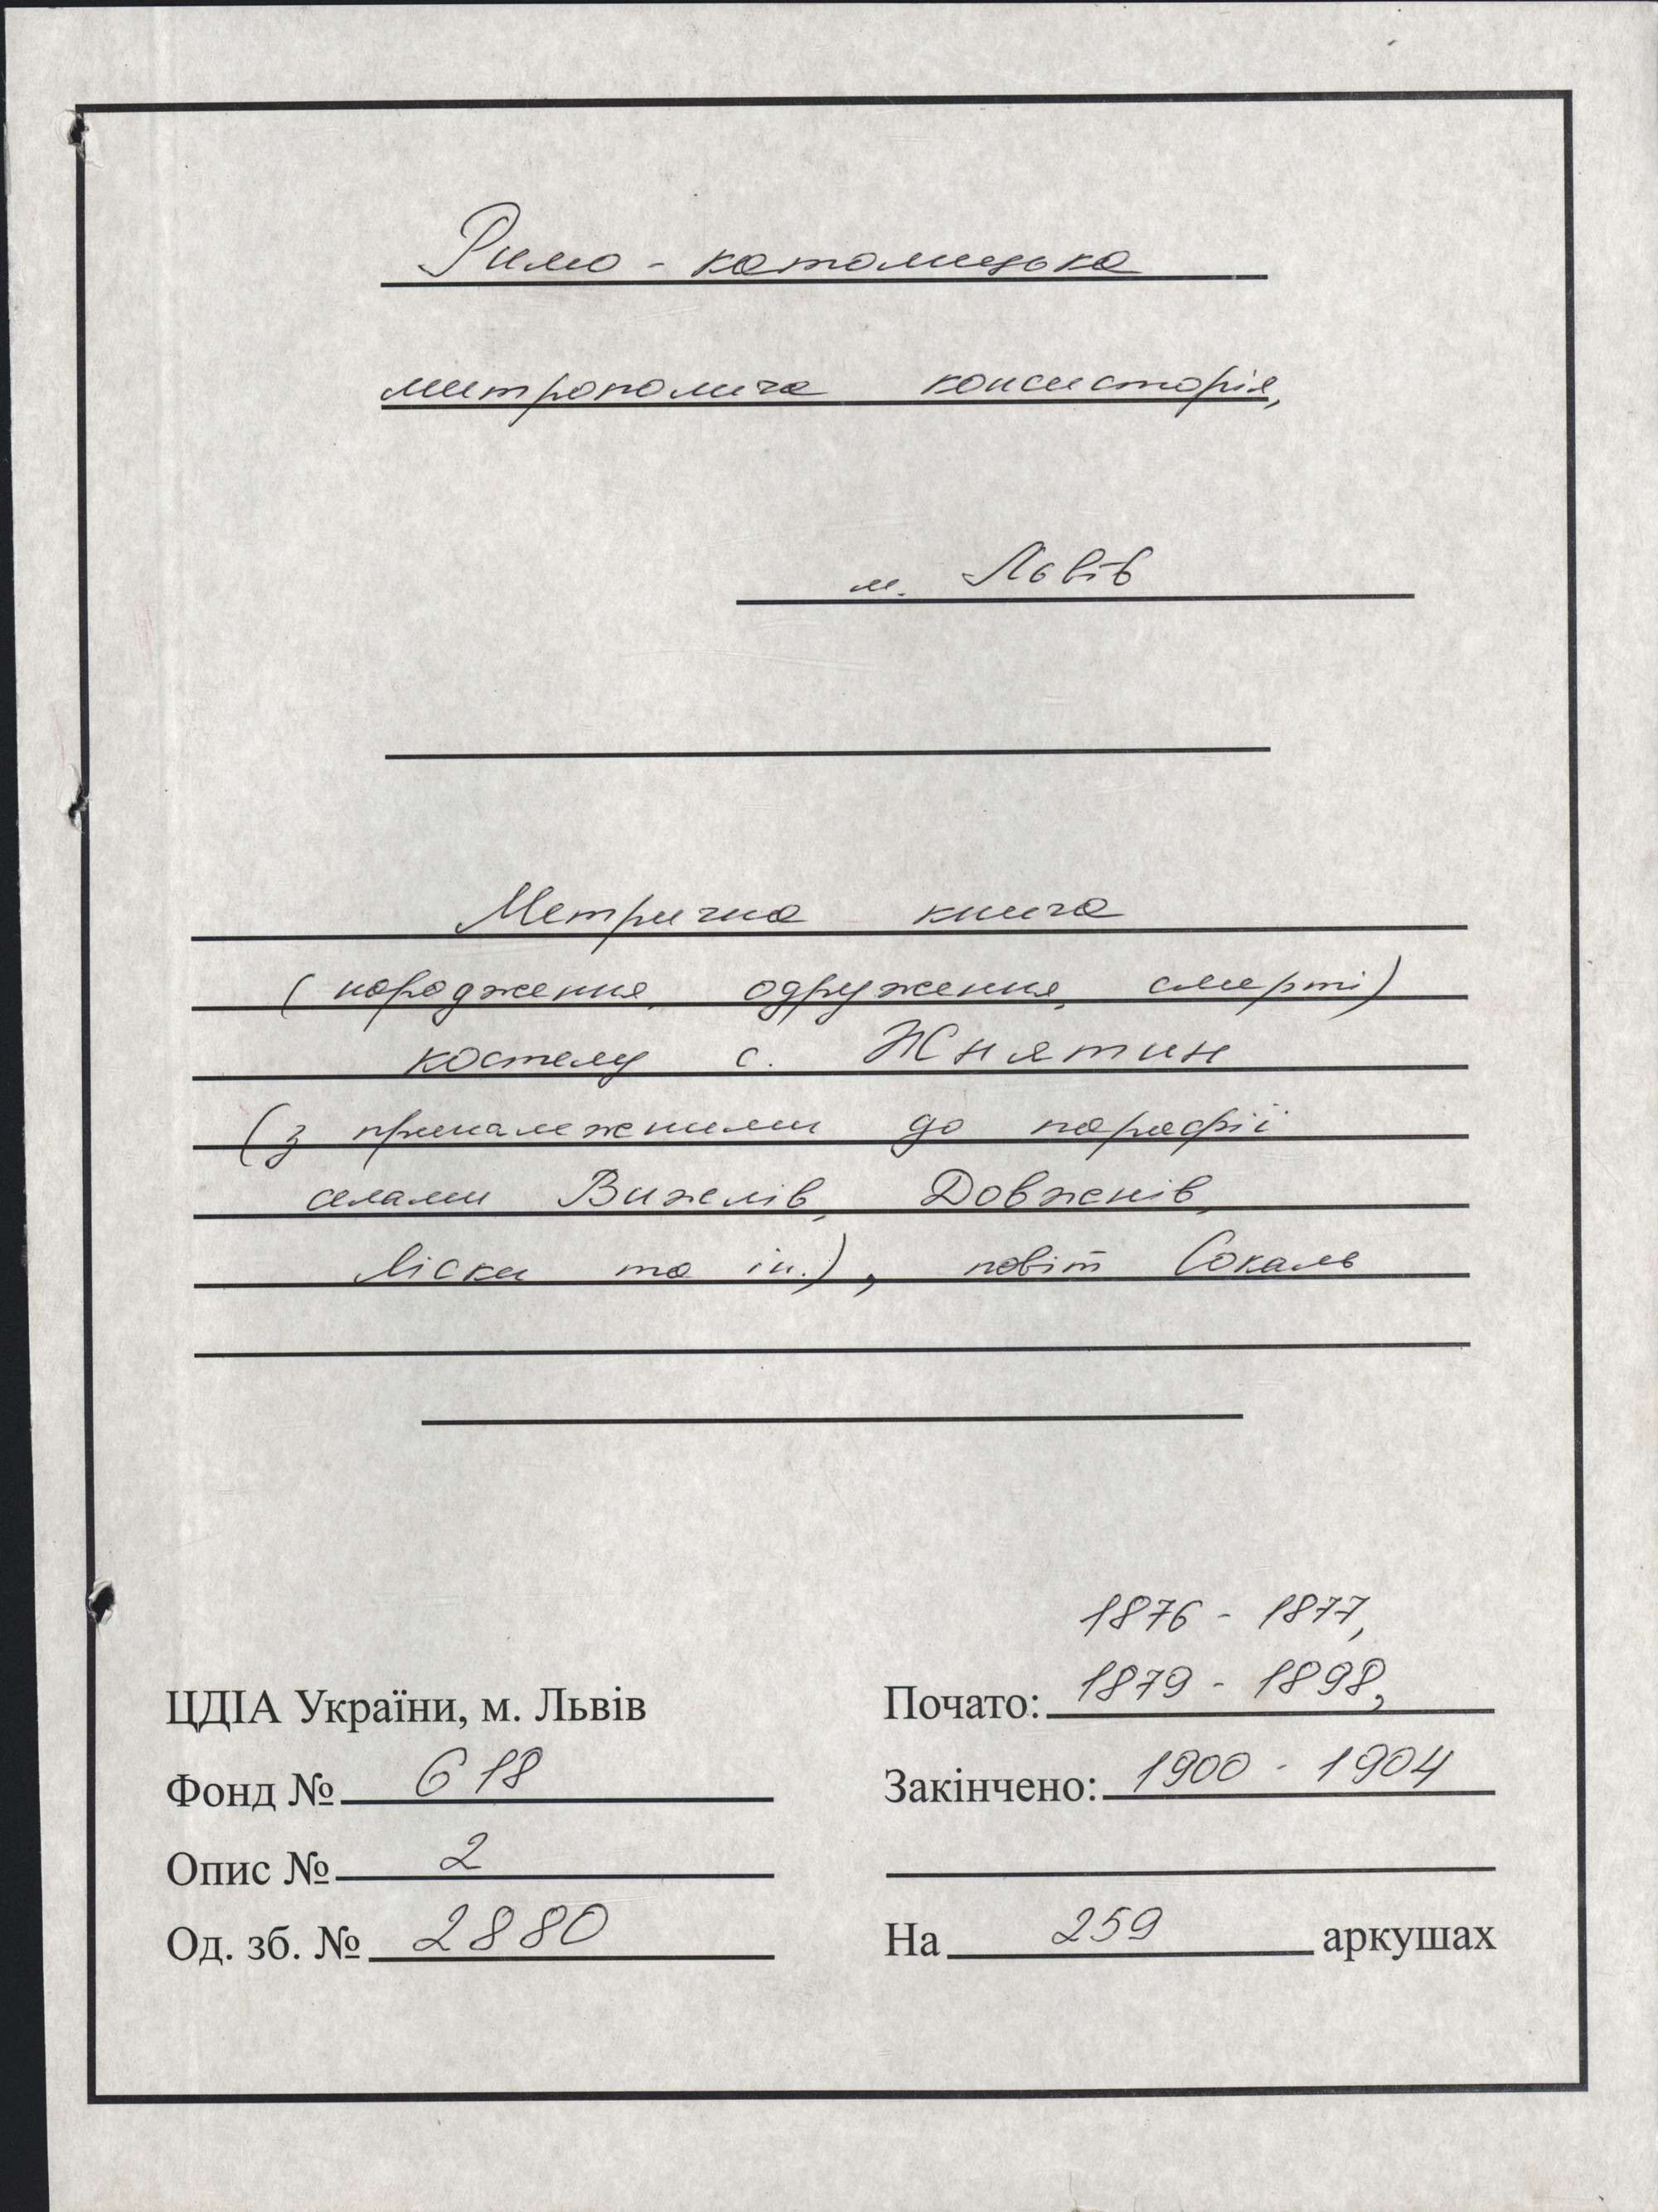 Римо - католицька
митрополича консисторія,
м. Львів
Метрична книга
(народження, одруження, смерті)
костелу с. Жнятин
(з приналежними до парафії
селами Вижлів, Довженів,
Ліски та ін.), повіт Сокаль
1876 - 1877,
ЦДІА України, м. Львів Почато: 1879 - 1898,
Фонд № 618 Закінчено: 1900 - 1904
Опис № 2
Од. зб. № 2880 На 259 аркушах